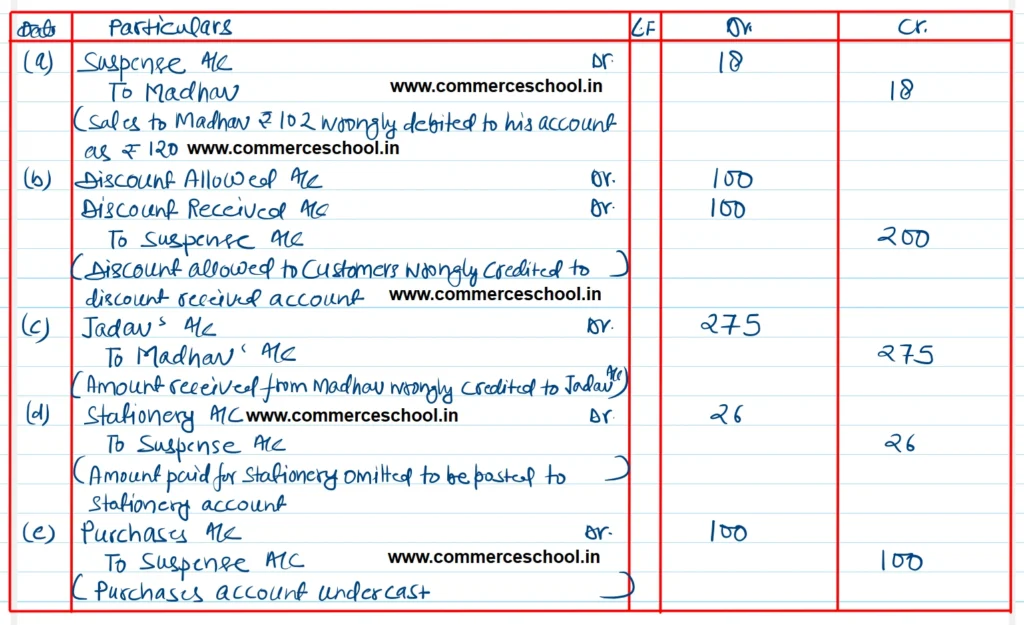 Date Particulars L.F Dr. Cr.
(a) Suspense A/c Dr. 18
To Madhav www.commerceschool.in 18
(Sales to Madhav ₹ 102 wrongly debited to his account
as ₹ 120 www.commerceschool.in
(b) Discount Allowed A/c Dr. 100
Discount Received A/c Dr. 100
To Suspense A/c 200
(Discount allowed to Customers wrongly credited to)
discount received account www.commerceschool.in
(c) Jadav's A/c Dr. 275
To Madhav' A/c 275
(Amount received from Madhav wrongly credited to Jadav A/c)
(d) Stationery A/C www.commerceschool.in Dr. 26
To Suspense A/c 26
(Amount paid for Stationery omitted to be posted to)
Stationery account
(e) Purchases A/c Dr. 100
To Suspense A/C www.commerceschool.in 100
(Purchases account undercast)